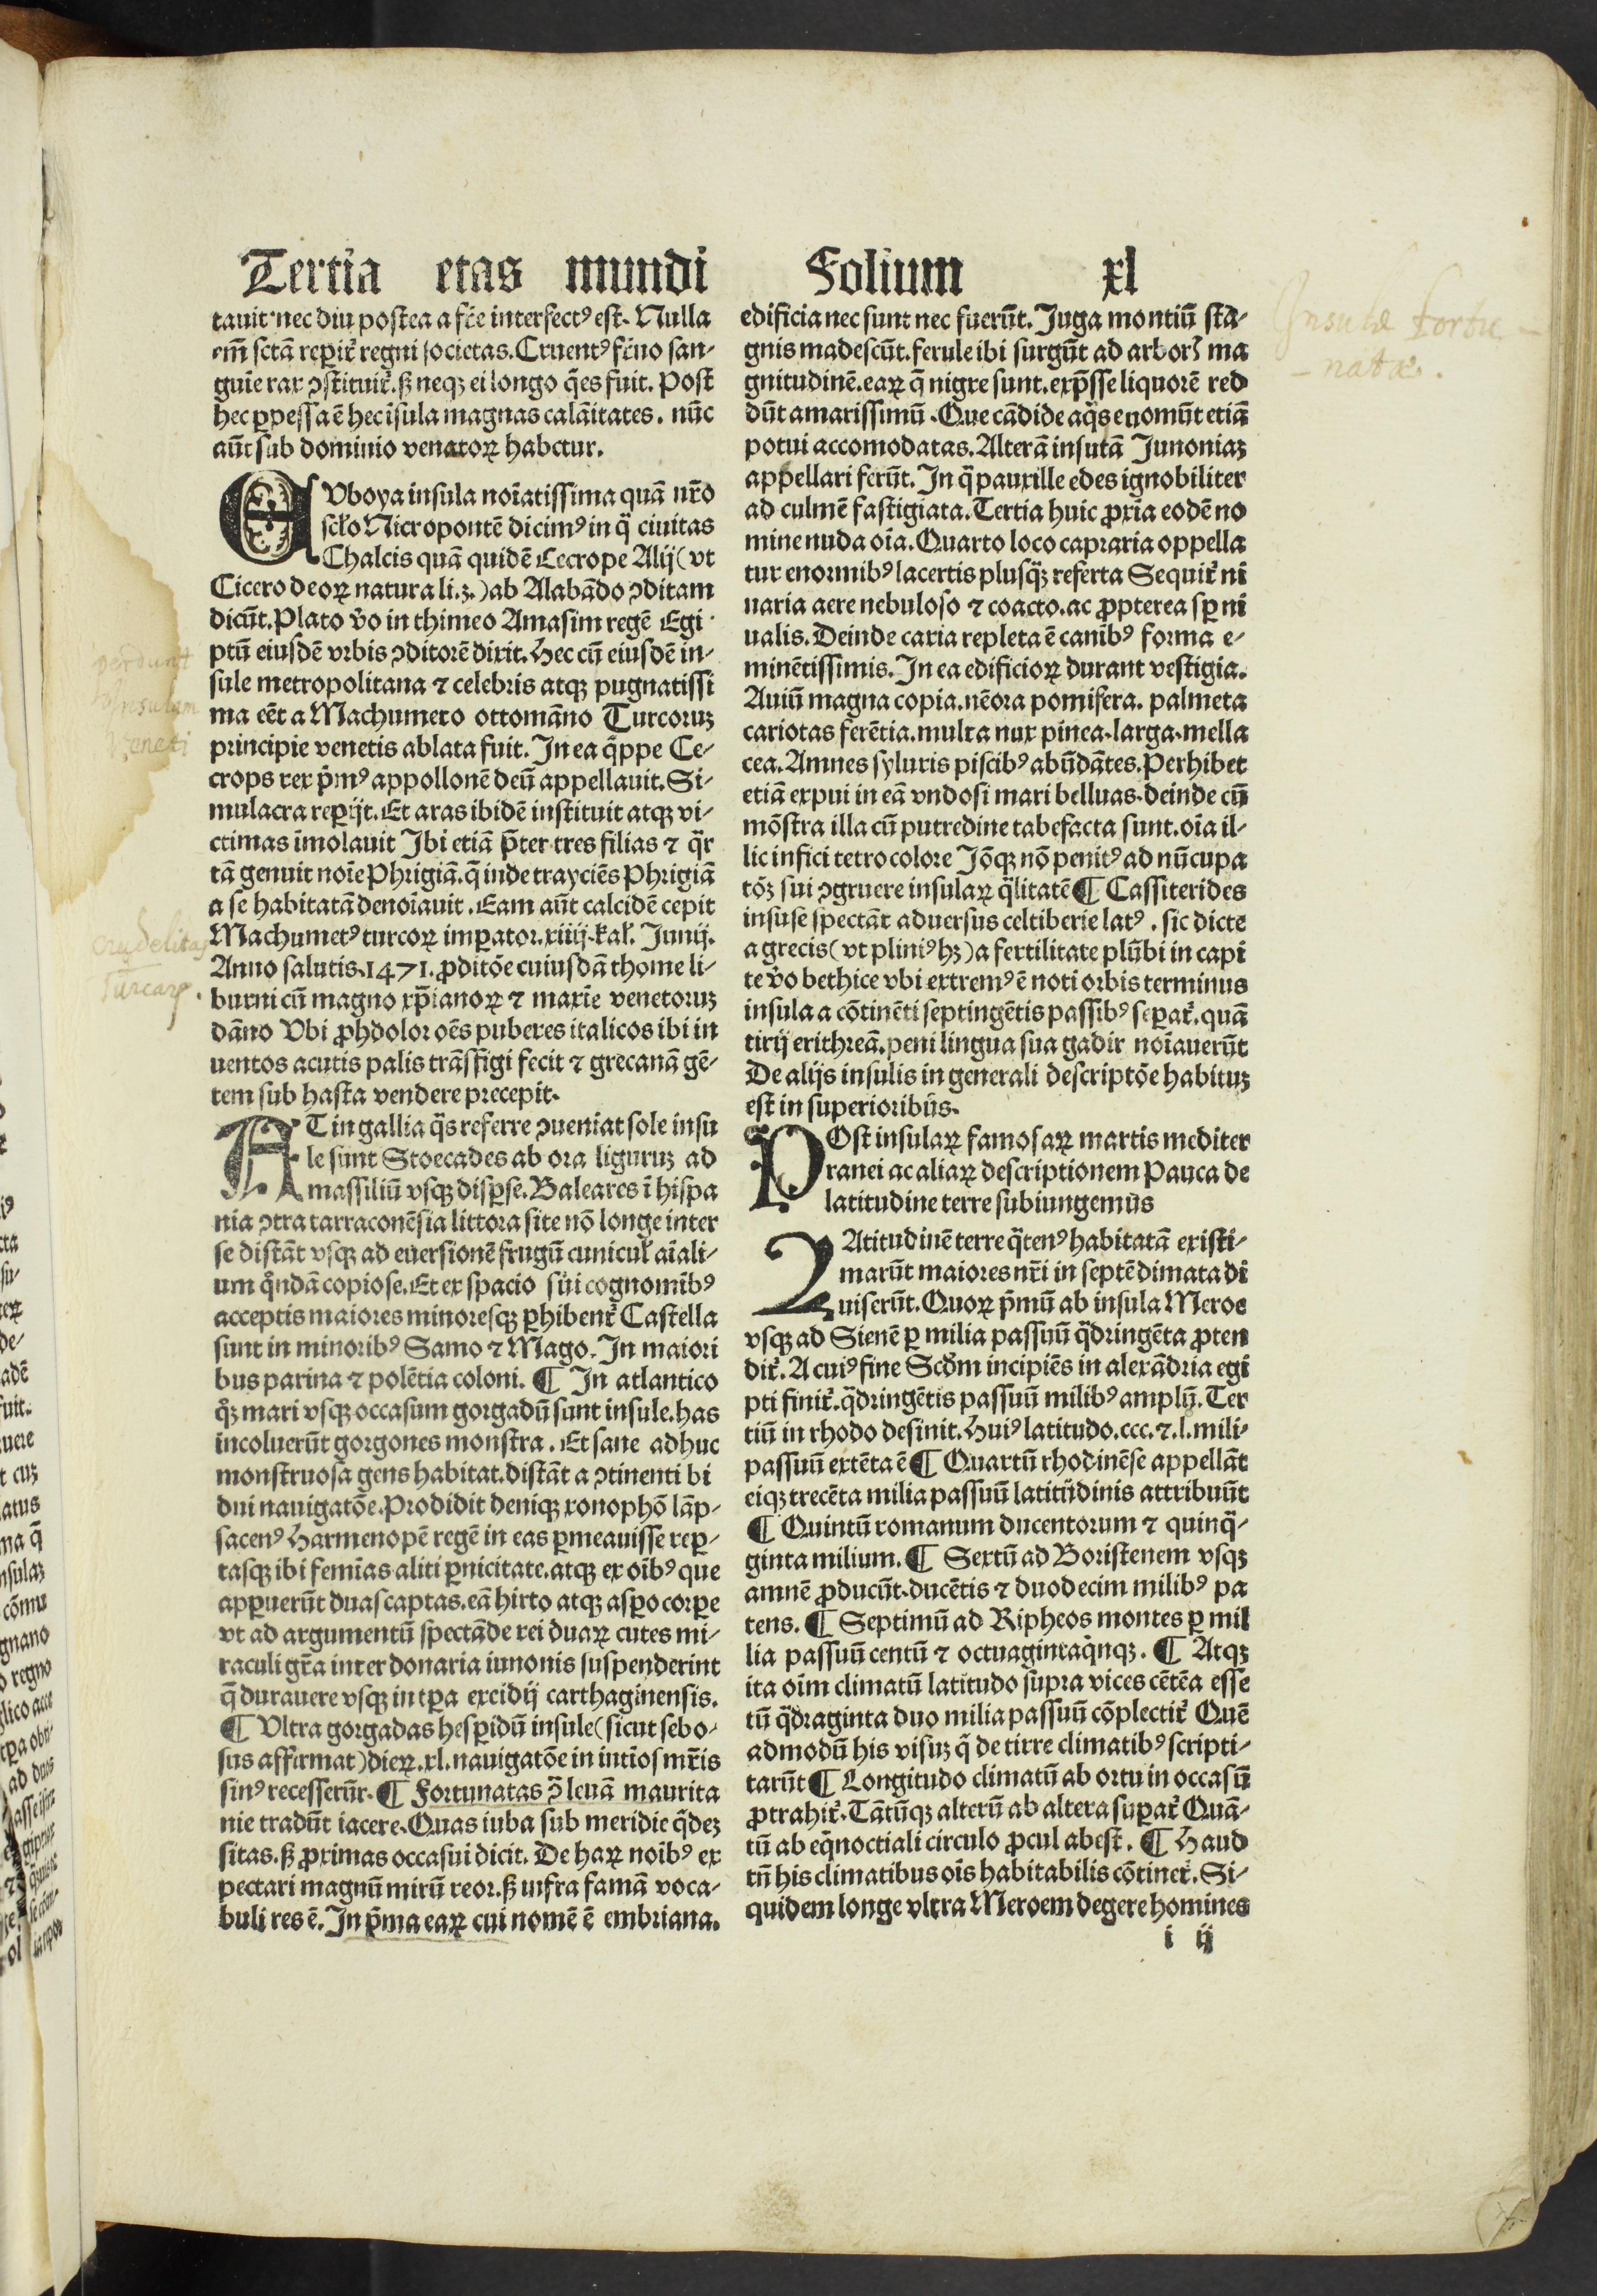 Tertia etas mundi
tauit·nec diu postea a fr̄e interfectꝰ est. Nulla
em̄ sctā reꝑit̉ regni societas. Cruentꝰ fr̄no san-
guīe rax ↄstituit̉. ß neqꝫ ei longo q̄es fuit. Post
hec ꝑpessa ē hec īsula magnas calāitates. nūc
aūt sub dominio venatoꝝ habetur.
EUboya insula noīatissima quā nr̄o
scło Nicropontē dicimꝰ in q̄ ciuitas
Chalcis quā quidē Cecrope Alij (vt
Cicero deoꝝ natura li.ȝ.) ab Alabādo ↄditam
dicūt. Plato v̄o in thimeo Amasim regē Egi
ptū eiusdē vrbis ↄditorē dixit. Hec cū eiusdē in-
sule metropolitana ⁊ celebris atqꝫ pugnatissi
ma eēt a Machumeto ottomāno Turcoruꝫ
principie venetis ablata fuit. In ea q̄ppe Ce-
crops rex p̄mꝰ appollonē deū appellauit. Si-
mulacra reꝑijt. Et aras ibidē instituit atqꝫ vi-
ctimas īmolauit Ibi etiā p̄ter tres filias ⁊ q̄r
tā genuit noīe Phrigiā. q̄ inde trayciēs Phrigiā
a se habitatā denoīauit. Eam aūt calcidē cepit
Machumetꝰ turcoꝝ imꝑator. xiiij. kal̉. Junij.
Anno salutis. 1471. ꝓditōe cuiusdā thome li-
burni cū magno xp̄ianoꝝ ⁊ maxīe venetoruꝫ
dāno Vbi ꝓhdolor oēs puberes italicos ibi in
uentos acutis palis trāsfigi fecit ⁊ grecanā gē-
tem sub hasta vendere precepit.
AT in gallia q̄s referre ↄueniat sole insu
le sunt Stoecades ab ora liguruꝫ ad
massiliū vsqꝫ disꝑse. Baleares ī hispa
nia ↄtra tarraconēsia littora site nō longe inter
se distāt vsqꝫ ad euersionē frugū cunicul̉ aīali-
um q̄ndā copiose. Et ex spacio sui cognomībꝰ
acceptis maiores minoresqꝫ ꝑhibent̉ Castella
sunt in minoribꝰ Samo ⁊ Mago. In maiori
bus parina ⁊ polētia coloni. ¶ In atlantico
q̄ꝫ mari vsqꝫ occasum gorgadū sunt insule. has
incoluerūt gorgones monstra. Et sane adhuc
monstruosa gens habitat. distāt a ↄtinenti bi
dui nauigatōe. Prodidit deniqꝫ xonophō lāp-
sacenꝰ Harmenopē regē in eas ꝑmeauisse reꝑ-
tasqꝫ ibi femīas aliti ꝑnicitate. atqꝫ ex oībꝰ que
apꝑuerūt duas captas. eā hirto atqꝫ asꝑo corꝑe
vt ad argumentū spectāde rei duaꝝ cutes mi-
raculi gr̄a inter donaria iunonis suspenderint
q̄ durauere vsqꝫ in tꝑa excidij carthaginensis.
¶ Vltra gorgadas hesꝑidū insule (sicut sebo-
sus affirmat) dieꝝ. xl. nauigatōe in intīos mr̄is
sinꝰ recesserūt. ¶ Fortunatas p̄ leuā maurita
nie tradūt iacere. Quas iuba sub meridie q̄deꝫ
sitas. ß ꝓximas occasui dicit. De haꝝ noībꝰ ex
pectari magnū mirū reor. ß infra famā voca-
buli res ē. In p̄ma eaꝝ cui nomē ē embriana.
Folium xl
edificia nec sunt nec fuerūt. Juga montiū sta-
gnis madescūt. ferule ibi surgūt ad arborꝫ ma
gnitudinē. eaꝝ q̄ nigre sunt. exp̄sse liquorē red
dūt amarissimū. Que cādide aq̄s euomūt etiā
potui accomodatas. Alterā insulā Junoniaꝫ
appellari ferūt. In q̄ pauxille edes ignobiliter
ad culmē fastigiata. Tertia huic ꝓxīa eodē no
mine nuda oīa. Quarto loco capraria oppella
tur enormibꝰ lacertis plusq̄ꝫ referta Sequit̉ ni
uaria aere nebuloso ⁊ coacto. ac ꝓpterea sꝑ ni
ualis. Deinde caria repleta ē canibꝰ forma e-
minētissimis. In ea edificioꝝ durant vestigia.
Auiū magna copia. nēora pomifera. palmeta
cariotas ferētia. multa nux pinea. larga mella
cea. Amnes syluris piscibꝰ abūdātes. Perhibet
etiā expui in eā vndosi mari belluas. deinde cū
mōstra illa cū putredine tabefacta sunt. oīa il-
lic infici tetro colore Jōqꝫ nō penitꝰ ad nūcupa
tōꝫ sui ↄgruere insulaꝝ q̄litatē ¶ Cassiterides
insule spectāt aduersus celtiberie latꝰ. sic dicte
a grecis (vt pliniꝰ hꝫ) a fertilitate plūbi in capi
te v̄o bethice vbi extremꝰ ē noti orbis terminus
insula a cōtinēti septingētis passibꝰ seꝑat̉. quā
tirij erithreā. peni lingua sua gadir noīauerūt
De alijs insulis in generali descriptōe habituꝫ
est in superioribus.
POst insulaꝝ famosaꝝ martis mediter
ranei ac aliaꝝ descriptionem Pauca de
latitudine terre subiungemus
LAtitudinē terre q̄tenꝰ habitatā existi-
marūt maiores nr̄i in septē dimata di
uiserūt. Quoꝝ p̄mū ab insula Meroe
vsqꝫ ad Sienē ꝑ milia passuū q̄dringēta ꝓten
dit̉. A cuiꝰ fine Scd̄m incipiēs in alexādria egi
pti finit̉. q̄dringētis passuū milibꝰ amplū. Ter
tiū in rhodo desinit. Huiꝰ latitudo. ccc. ⁊. l. mili-
passuū extēta ē ¶ Quartū rhodinēse appellāt
eiqꝫ trecēta milia passuū latitudinis attribuūt
¶ Quintū romanum ducentorum ⁊ quinq̄-
ginta milium. ¶ Sextū ad Boristenem vsqꝫ
amnē ꝓducūt. ducētis ⁊ duodecim milibꝰ pa
tens. ¶ Septimū ad Ripheos montes ꝑ mil
lia passuū centū ⁊ octuagintaq̄nqꝫ. ¶ Atqꝫ
ita oīm climatū latitudo supra vices cētēa esse
tū q̄draginta duo milia passuū cōplectit̉ Quē
admodū his visuꝫ q̄ de tirre climatibꝰ scripti-
tarūt ¶ Longitudo climatū ab ortu in occasū
ꝓtrahit̉. Tātūqꝫ alterū ab altera suꝑat̉ Quā-
tū ab eq̄noctiali circulo ꝓcul abest. ¶ Haud
tū his climatibus oīs habitabilis cōtinet̉. Si-
quidem longe vltra Meroem degere homines
i ij
perdunt
Insulam
Veneti
Crudelitas
Turcarꝝ.
Insulæ Fortu-
-natæ.